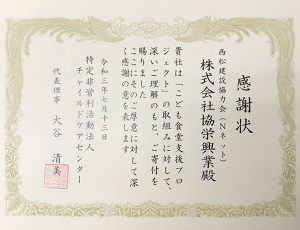 感謝状
西松建設協力会（Nネット）
株式会社協栄興業殿
貴社は「こども食堂支援プロ
ジェクト」の取組みに対して、
深いご理解のもと、ご寄付を
賜りました
ここにそのご厚意に対して深
く感謝の意を表します
令和三年七月十三日
特定非営利活動法人
チャイルドケアセンター
代表理事　大谷　清美